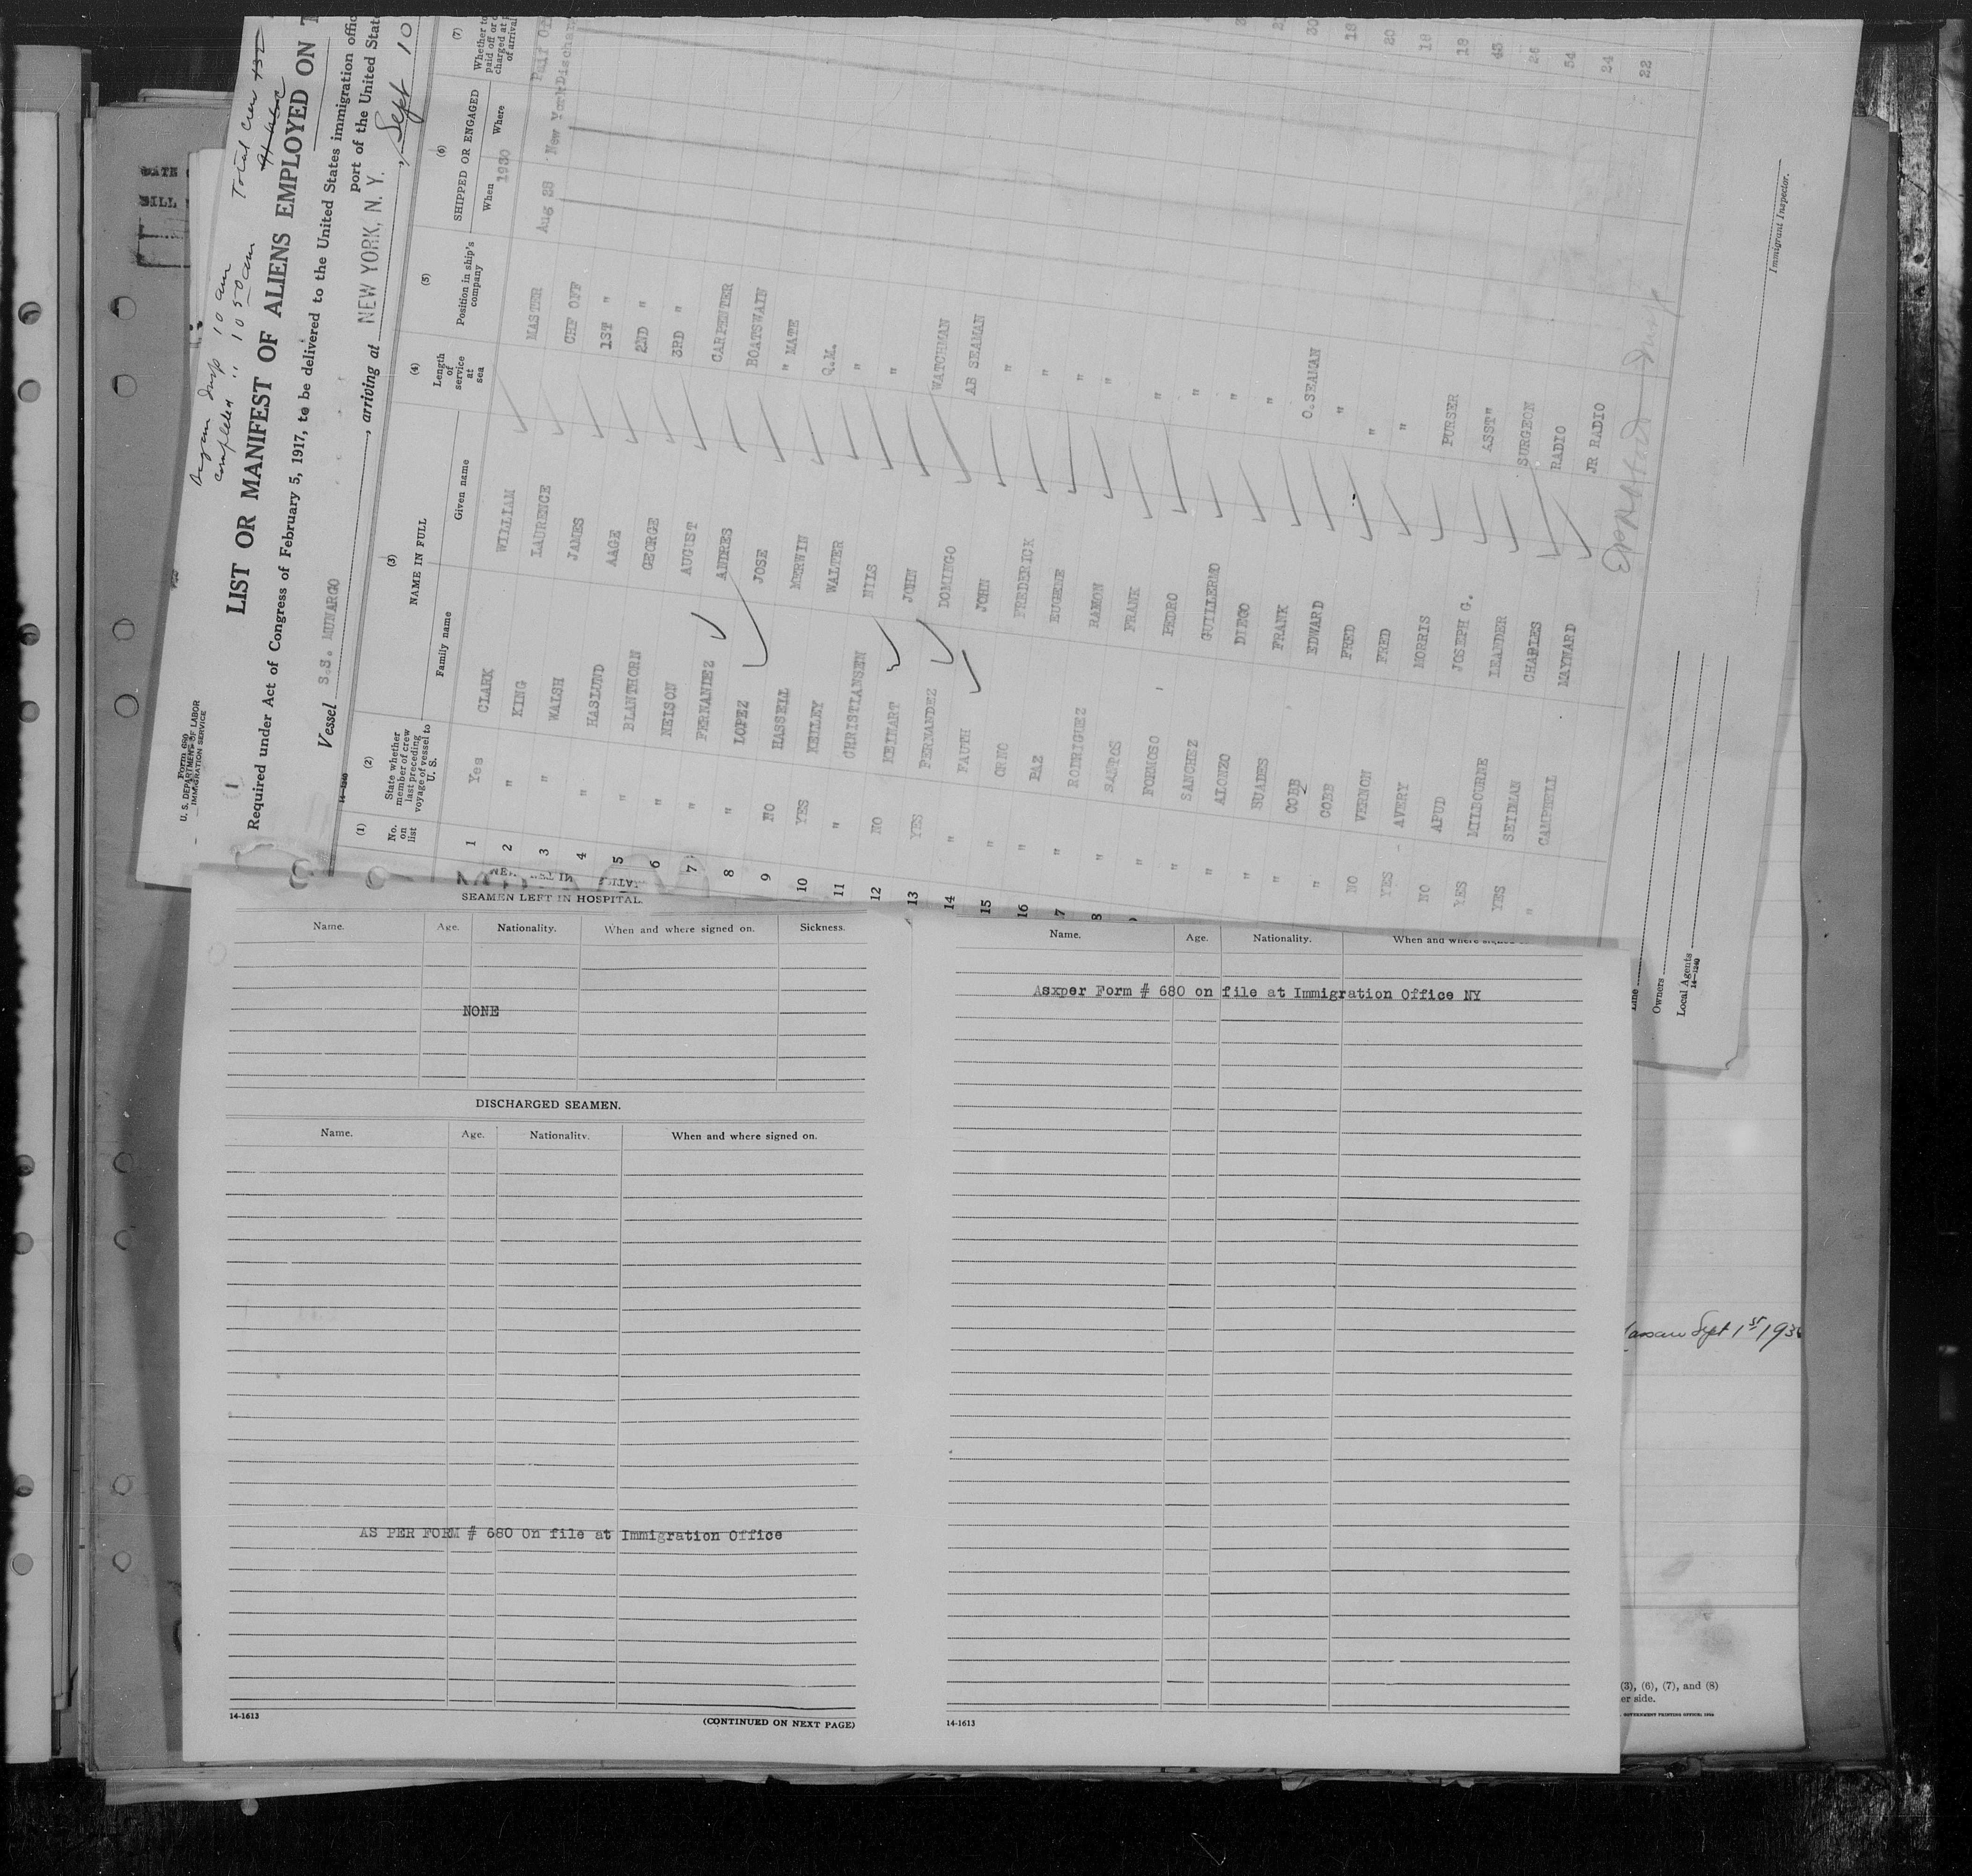 Form 680
U. S. DEPARTMENT OF LABOR
IMMIGRATION SERVICE
Began Insp 10 am
Completed " 10 50 am
Total Crew 132
LIST OR MANIFEST OF ALIENS EMPLOYED ON T
Required under Act of Congress of February 5, 1917, to be delivered to the United States immigration offic
port of the United Stat
Vessel S.S. MUNARGO, arriving at NEW YORK, N. Y., Sept 10
14-1240
(1) (2) (3) (4) (5) (6) (7)
No. on list
State whether member of crew last preceding voyage of vessel to U. S.
NAME IN FULL
Family name Given name
Length of service at sea
Position in ship's company
SHIPPED OR ENGAGED
When Where
Whether to paid off or charged at of arrival
1930
1 Yes CLARK WILLIAM MASTER Aug 28 New York Paid Off
Dischar
2 " KING LAURENCE CHF OFF
3 " WALSH JAMES 1ST "
4 " HASLUND AAGE 2ND "
5 " BLANTHORN GEORGE 3RD "
6 " NELSON AUGUST CARPENTER
7 " FERNANDEZ ANDRES BOATSWAIN
8 " LOPEZ JOSE " MATE
9 NO HASSELL MERWIN Q.M.
10 YES KEILEY WALTER "
11 " CHRISTIANSEN NILS "
12 NO MEINART JOHN WATCHMAN
13 YES FERNANDEZ DOMINGO AB SEAMAN
14 " FAUTH JOHN "
15 " ORNO FREDERICK "
16 " PAZ EUGENE "
7 " RODRIGUEZ RAMON "
8 " SANTOS FRANK "
" FORMOSO PEDRO "
" SANCHEZ GUILLERMO "
" ALONZO DIEGO "
" BUADES FRANK O.SEAMAN
" COBB EDWARD "
" COBB FRED "
NO VERNON FRED "
YES AVERY MORRIS PURSER
NO APUD JOSEPH G. ASST "
YES MILBOURNE LEANDER SURGEON
YES SEIDMAN CHARLES RADIO
" CAMPBELL MAYNARD JR RADIO
30
18
20
18
18
43
26
54
24
22
Immigrant Inspector.
Line
Owners
Local Agents
14-1240
SEAMEN LEFT IN HOSPITAL.
Name. Age. Nationality. When and where signed on. Sickness.
NONE
DISCHARGED SEAMEN.
Name. Age. Nationality. When and where signed on.
AS PER FORM # 680 On file at Immigration Office
14-1613
(CONTINUED ON NEXT PAGE)
Name. Age. Nationality. When and where signed on.
Asxper Form # 680 on file at Immigration Office NY
14-1613
Sept 1st 193
(3), (6), (7), and (8)
er side.
GOVERNMENT PRINTING OFFICE: